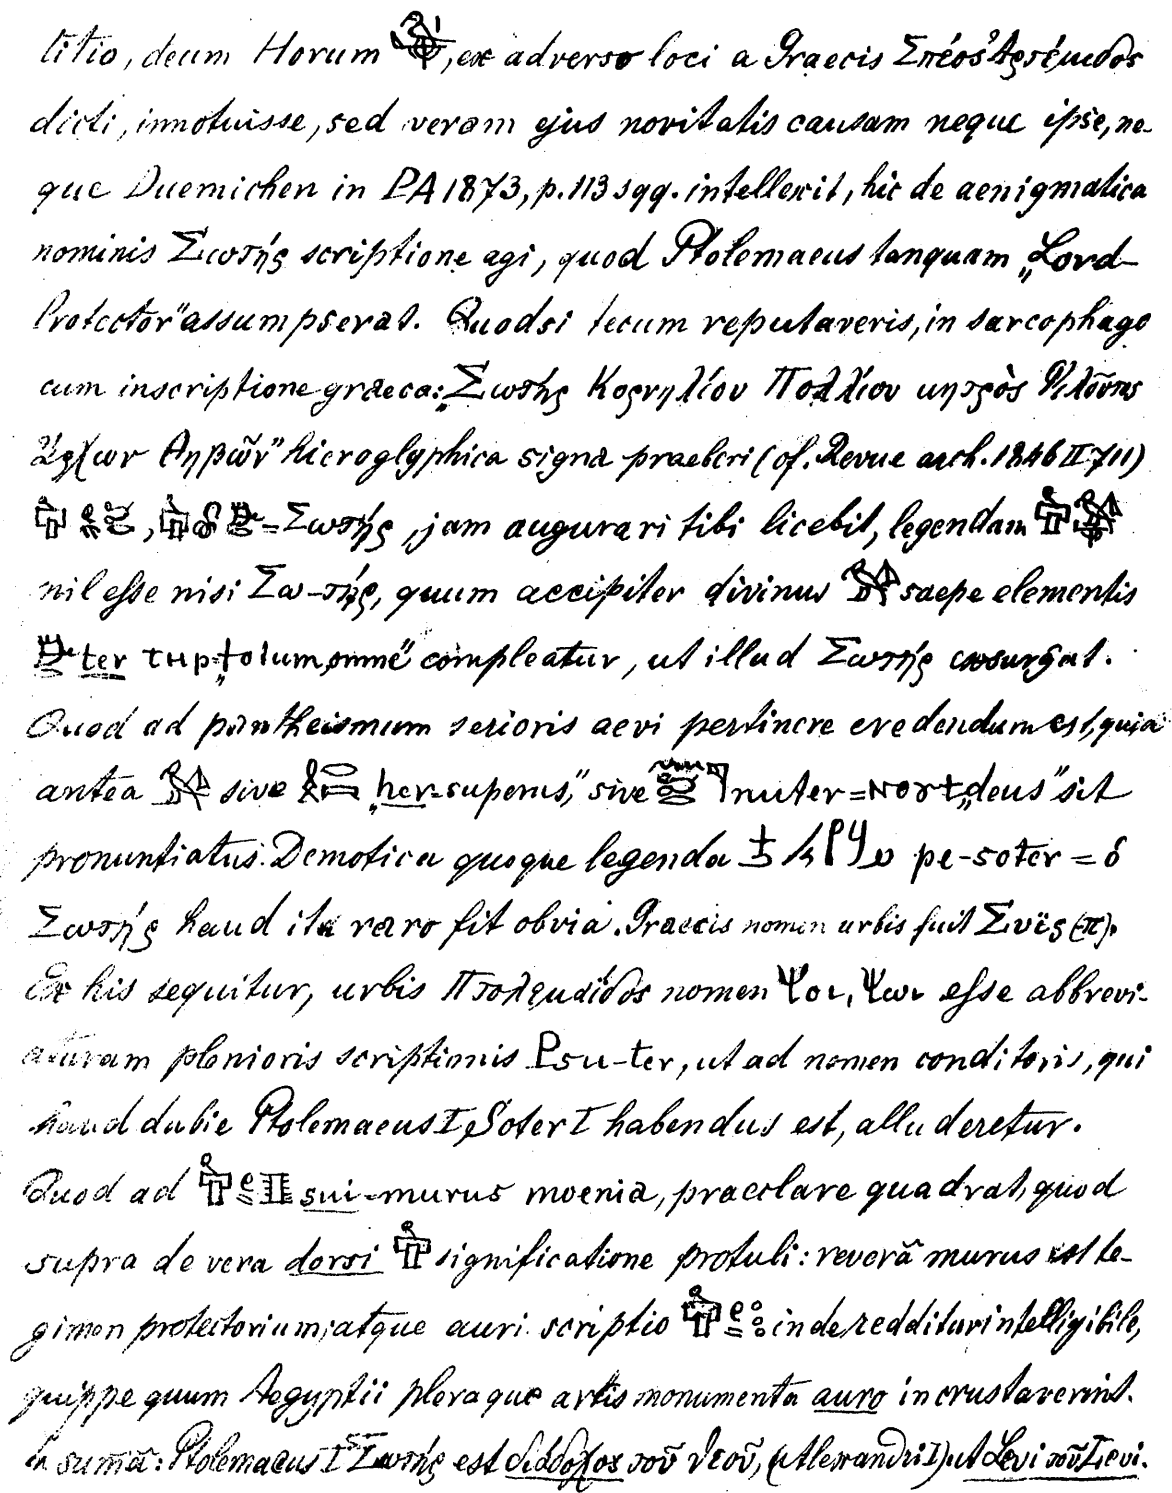 titio, deum Horum, ex adverso loci a Graecis Σπέος Ἀρτέμιδος
dicti, innotuisse, sed veram ejus novitatis causam neque ipse, ne-
que Duemichen in PA 1873, p. 113 sqq. intellexit, hic de aenigmatica
nominis Σωτής scriptione agi, quod Ptolemaeus tanquam „Lord-
Protector" assumpserat. Quodsi tecum reputaveris, in sarcophago
cum inscriptione graeca: „Σωτής Κορνηλίου Πολλίου μητρὸς Φιλοῦτος
ἄρχων Θηβῶν" hieroglyphica signa praeberi (cf. Revue arch. 1846 II 711)
, = Σωτής, jam augurari tibi licebit, legendam
nil esse nisi Σω-τής, quum accipiter divinus saepe elementis
ter ⲧⲏⲣ „tolum, omne" compleatur, ut illud Σωτής exsurgat.
Quod ad pantheismum serioris aevi pertinere credendum est, quia
antea sive „her-superus," sive nuter = ⲛⲟⲩⲧ „deus" sit
pronuntiatus. Demotica quoque legenda pe-soter = ὁ
Σωτής haud ita raro fit obvia. Graecis nomen urbis fuit Συϊς (π).
Ex his sequitur, urbis Πτολεμαΐδος nomen Ψοι, Ψωι esse abbrevi-
aturam plenioris scriptionis Psu-ter, ut ad nomen conditoris, qui
haud dubie Ptolemaeus I, Soter I habendus est, alluderetur.
Quod ad sui-murus moenia, praeclare quadrat, quod
supra de vera dorsi significatione protuli: reverâ murus est te-
gimen protectorium; atque auri scriptio inde redditur intelligibile,
quippe quum Aegyptii pleraque artis monumenta auro incrustaverint.
In summâ: Ptolemaeus I Σωτής est διάδοχος τοῦ θεοῦ, (Alexandri I) ut Levi τοῦ Ιευι.